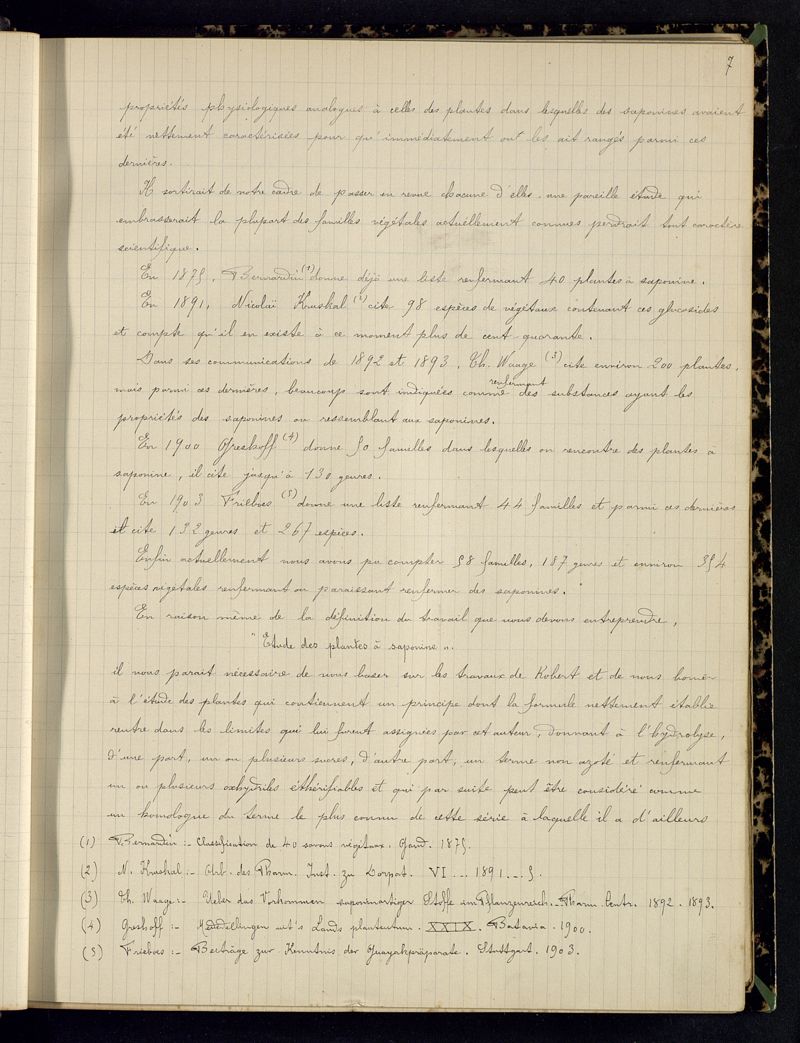 7
propriétés physiologiques analogues à celles des plantes dans lesquelles des saponines avaient
été nettement caractérisées pour qu'immédiatement on les ait rangés parmi ces
dernières.
Il sortirait de notre cadre de passer en revue chacune d'elles. une pareille étude qui
embrasserait la plupart des familles végétales actuellement connues perdrait tout caractère
scientifique.
En 1875, Bernardin (1) donne déjà une liste renfermant 40 plantes à saponine.
En 1891, Nicolaï Kruskal (2) cite 98 espèces de végétaux contenant ces glucosides
et compte qu'il en existe à ce moment plus de cent quarante.
Dans ses communications de 1892 et 1893, Th. Waage (3) cite environ 200 plantes,
mais parmi ces dernières, beaucoup sont indiquées comme renfermant des substances ayant les
propriétés des saponines ou ressemblant aux saponines.
En 1900 Greshoff (4) donne 50 familles dans lesquelles on rencontre des plantes à
saponine, il cite jusqu'à 130 genres.
En 1903 Frieboes (5) donne une liste renfermant 44 familles et parmi ces dernières
il cite 132 genres et 267 espèces.
Enfin actuellement nous avons pu compter 58 familles, 187 genres et environ 354
espèces végétales renfermant ou paraissant renfermer des saponines.
En raison même de la définition du travail que nous devons entreprendre,
"Etude des plantes à saponine".
il nous parait nécessaire de nous baser sur les travaux de Kobert et de nous borner
à l'étude des plantes qui contiennent un principe dont la formule nettement établie
rentre dans les limites qui lui furent assignées par cet auteur, donnant à l'hydrolyse,
d'une part, un ou plusieurs sucres, d'autre part, un terme non azoté et renfermant
un ou plusieurs oxhydriles éthérifiables et qui par suite peut être considéré comme
un homologue du terme le plus connu de cette série à laquelle il a d'ailleurs
(1) Bernardin :- Classification de 40 savons végétaux. Gand. 1875.
(2) N. Kruskal :- Arb. des Pharm. Inst. zu Dorpat. VI... 1891...5.
(3) Th. Waage :- Ueber das Vorkommen saponinartiger Stoffe im Pflanzenreich._ Pharm. Centr. 1892. 1893.
(4) Greshoff :- Mededeelingen uit's Lands plantentuin. XXIX. Batavia. 1900.
(5) Frieboes :- Beiträge zur Kenntnis der Guayakpräparate. Stuttgart. 1903.